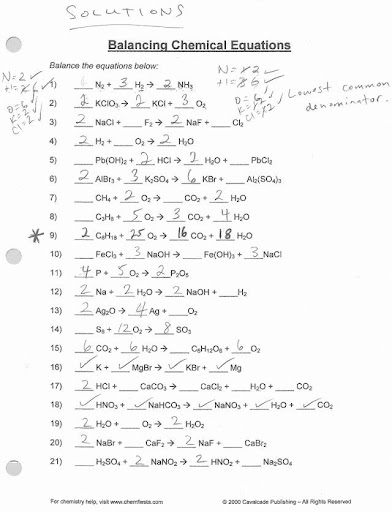 SOLUTIONS
Balancing Chemical Equations
Balance the equations below:
N=2 ✓
N=2 ✓
1) __ N₂ + 3 H₂ → 2 NH₃
O=6 ✓
K=2 ✓
Cl=2 ✓
Lowest common
denominator.
2) 2 KClO₃ → 2 KCl + 3 O₂
3) 2 NaCl + __ F₂ → 2 NaF + __ Cl₂
4) 2 H₂ + __ O₂ → 2 H₂O
5) __ Pb(OH)₂ + 2 HCl → 2 H₂O + __ PbCl₂
6) 2 AlBr₃ + 3 K₂SO₄ → 6 KBr + __ Al₂(SO₄)₃
7) __ CH₄ + 2 O₂ → __ CO₂ + 2 H₂O
8) __ C₃H₈ + 5 O₂ → 3 CO₂ + 4 H₂O
* 9) 2 C₈H₁₈ + 25 O₂ → 16 CO₂ + 18 H₂O
10) __ FeCl₃ + 3 NaOH → __ Fe(OH)₃ + 3 NaCl
11) 4 P + 5 O₂ → 2 P₂O₅
12) 2 Na + 2 H₂O → 2 NaOH + __ H₂
13) 2 Ag₂O → 4 Ag + __ O₂
14) __ S₈ + 12 O₂ → 8 SO₃
15) 6 CO₂ + 6 H₂O → __ C₆H₁₂O₆ + 6 O₂
16) ✓ K + ✓ MgBr → ✓ KBr + ✓ Mg
17) 2 HCl + __ CaCO₃ → __ CaCl₂ + __ H₂O + __ CO₂
18) ✓ HNO₃ + ✓ NaHCO₃ → ✓ NaNO₃ + ✓ H₂O + ✓ CO₂
19) 2 H₂O + __ O₂ → 2 H₂O₂
20) 2 NaBr + __ CaF₂ → 2 NaF + __ CaBr₂
21) __ H₂SO₄ + 2 NaNO₂ → 2 HNO₂ + __ Na₂SO₄
For chemistry help, visit www.chemfiesta.com © 2000 Cavalcade Publishing – All Rights Reserved